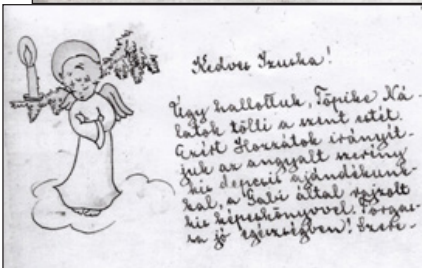 Kedves Izuska!
Úgy hallottuk, Töpike Ná-
latok tölti a szent estét.
Ezért Hozzátok irányít-
juk az angyalt szerény
kis ajándékunk-
kal, a Gabi által rajzolt
kis képeskönyvvel. Forgas-
sa jó egészségben! Szere-